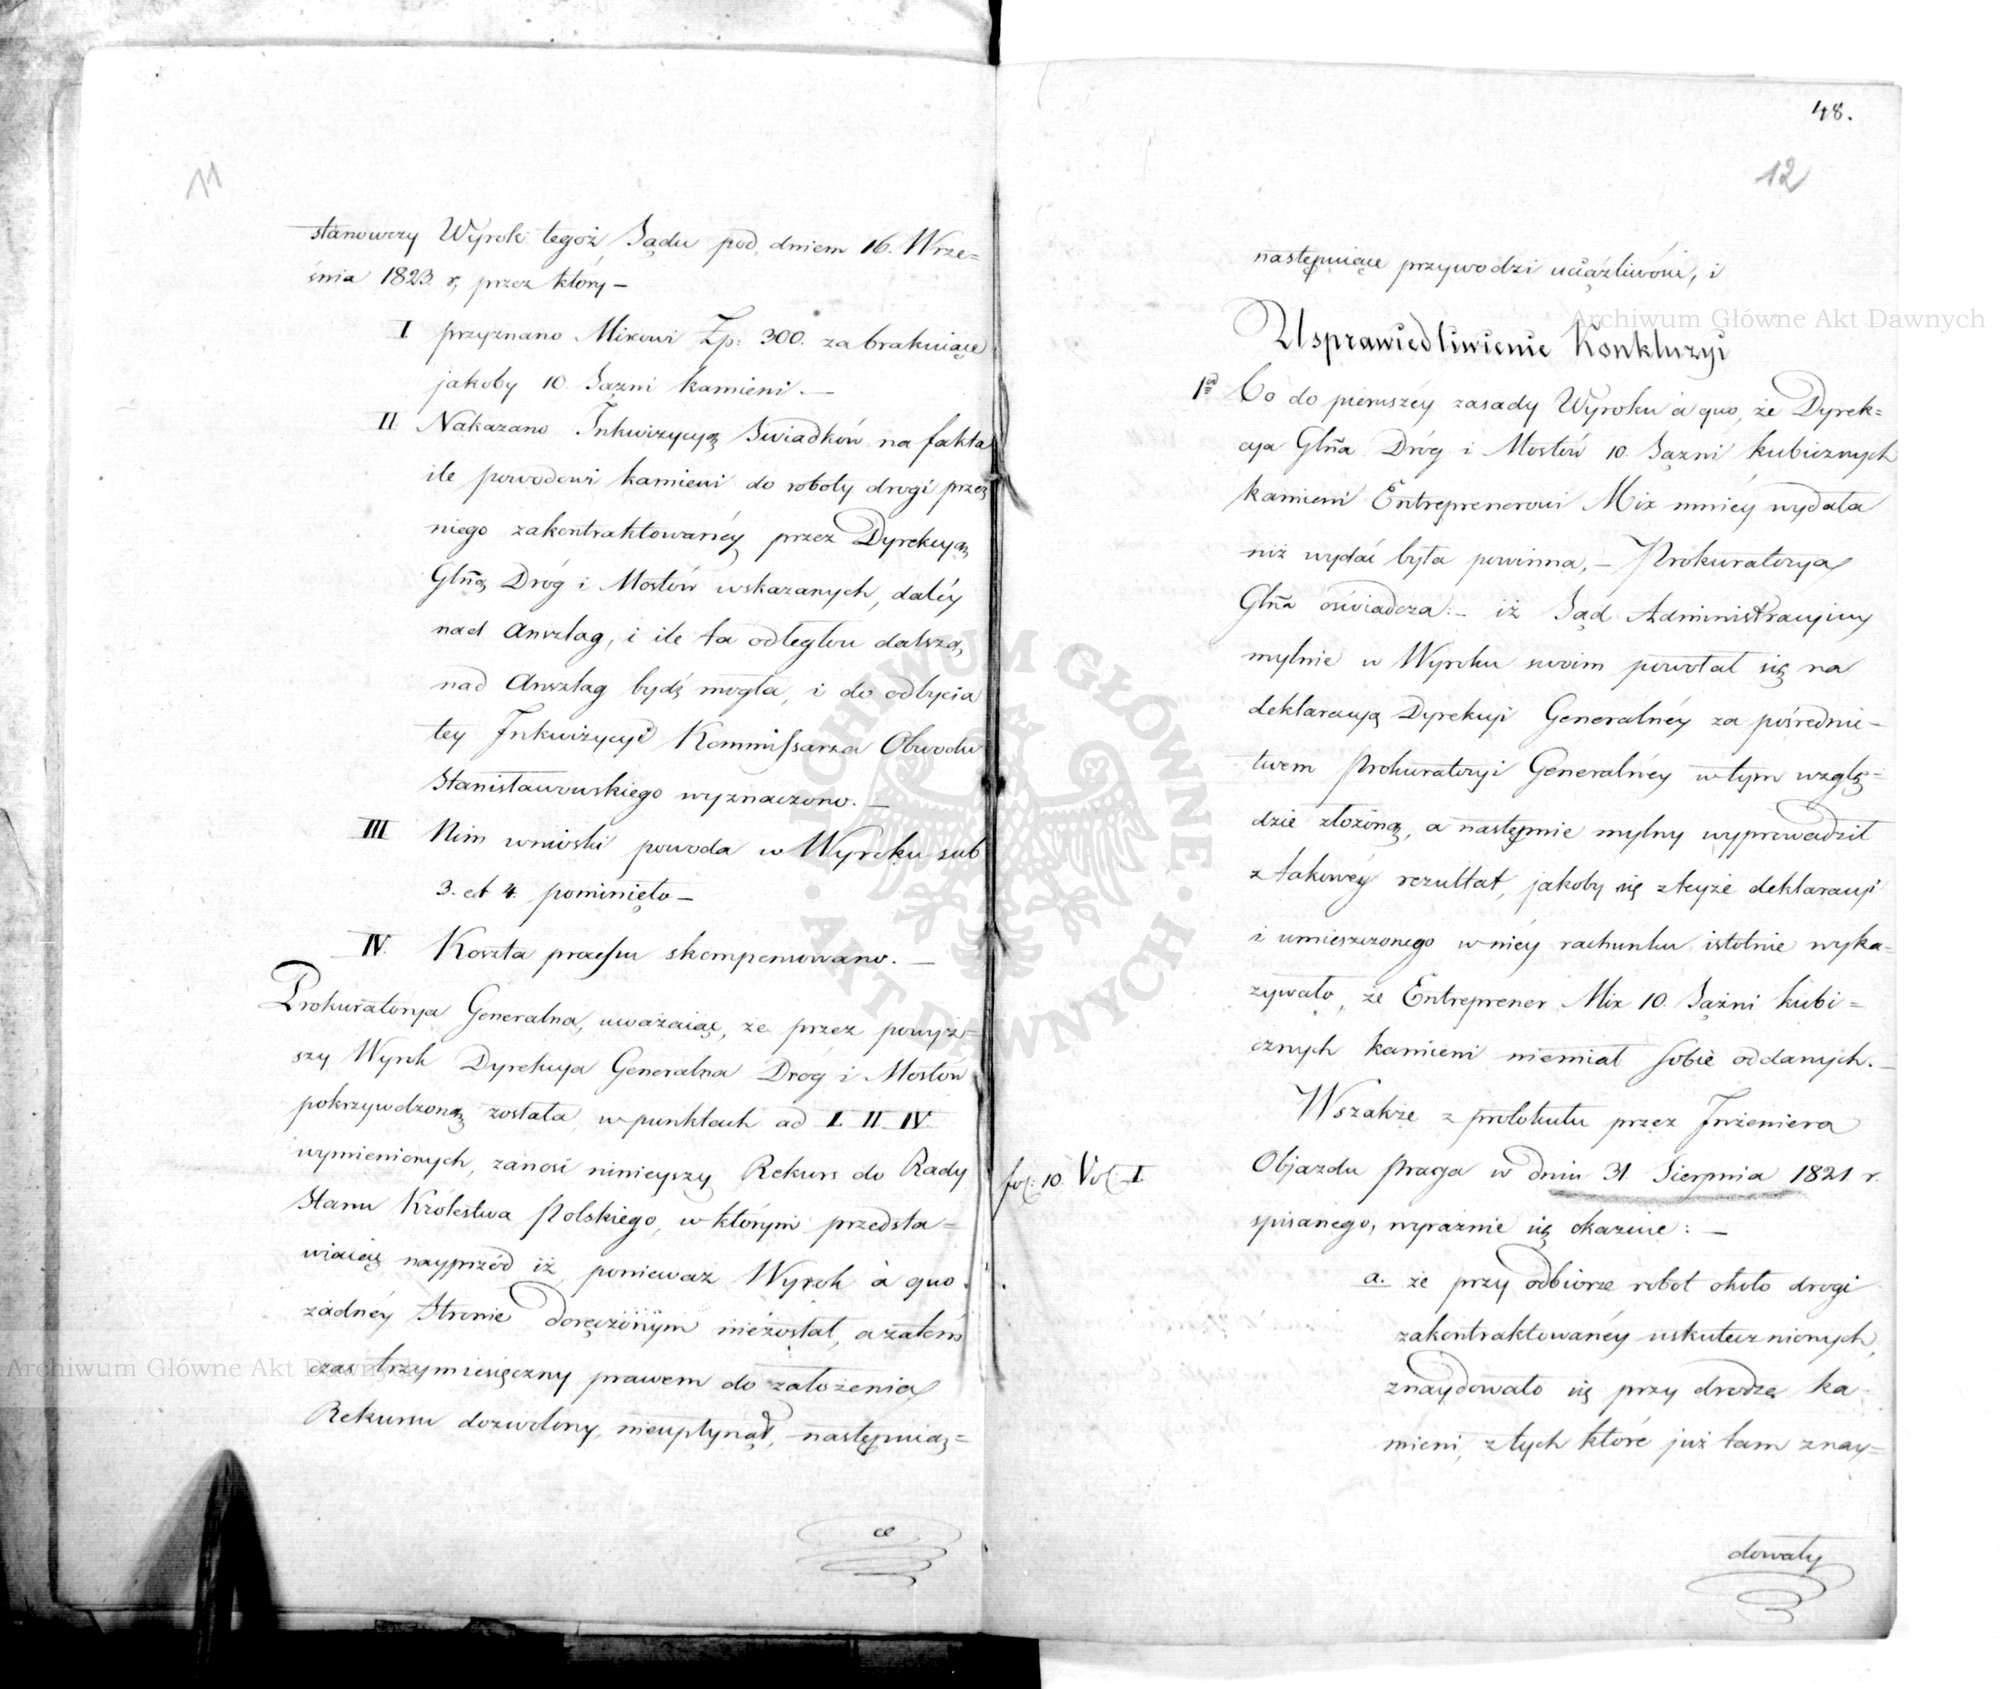 11
stanowczy Wyrok tegoż Sądu pod dniem 16. Wrze=
śnia 1823. r, przez który –
I przyznano Mixowi Zp: 300. za brakuiące
jakoby 10. Sążni kamieni. –
II Nakazano Inkwizycyą Swiadków na fakta
ile powodowi kamieni do roboty drogi przez
niego zakontraktowanéy przez Dyrekcyą
Glñą Dróg i Mostów wskazanych, daléy
nad Anszlag, i ile ta odległość dalszą
nad Anszlag bydź mogła, i do odbycia
tey Inkwizycyi Kommissarza Obwodu
Stanisławowskiego wyznaczono. –
III Nim wnioski powoda w Wyroku sub
3. et 4. pominięto –
IV. Koszta processu skompensowano. –
Prokuratorya Generalna, uważaiąc, że przez powyż=
szy Wyrok Dyrekcya Generalna Dróg i Mostów
pokrzywdzoną została, w punktach ad I. II. IV.
wymienionych, zanosi ninieyszy Rekurs do Rady
Stanu Królestwa Polskiego, w którym przedsta=
wiaiąc nayprzód iż, ponieważ Wyrok à quo
żadnéy Stronie doręczonym niezostał, a zatém
czas trzymiesięczny prawem do założenia
Rekursu dozwolony, nieupłynął, następuią=
ce
48.
12
następuiące przywodzi uciążliwości, i
Usprawiedliwienie Konkluzyi
1º Co do pierwszéy zasady Wyroku à quo, że Dyrek=
cya Glña Dróg i Mostów 10. Sążni kubicznych
kamieni Entreprenerowi Mix mniéy wydała
niż wydać była powinna, – Prokuratorya
Glña oświadcza: – iż Sąd Administracyiny
mylnie w Wyroku swoim powołał się na
deklaracyą Dyrekcyi Generalnéy za pośredni=
twem Prokuratoryi Generalnéy w tym wzglę=
dzie złożoną, a następnie mylny wyprowadził
z takowéy rezultat, jakoby się z teyże deklaracyi
i umieszczonego w niéy rachunku istotnie wyka=
zywało, że Entreprener Mix 10. Sążni kubi=
cznych kamieni niemiał sobie oddanych. –
Wszakże z protokułu przez Inżeniera
Objazdu Praga w dniu 31. Sierpnia 1821 r.
fol: 10. Vol. I.
spisanego, wyraźnie się okazuie: –
a. że przy odbiorze robot około drogi
zakontraktowanéy uskutecznionych,
znaydowało się przy drodze ka=
mieni, z tych które już tam znay=
dowały
Archiwum Główne Akt Dawnych
Archiwum Główne Akt Dawnych
ARCHIWUM GŁÓWNE · AKT DAWNYCH ·